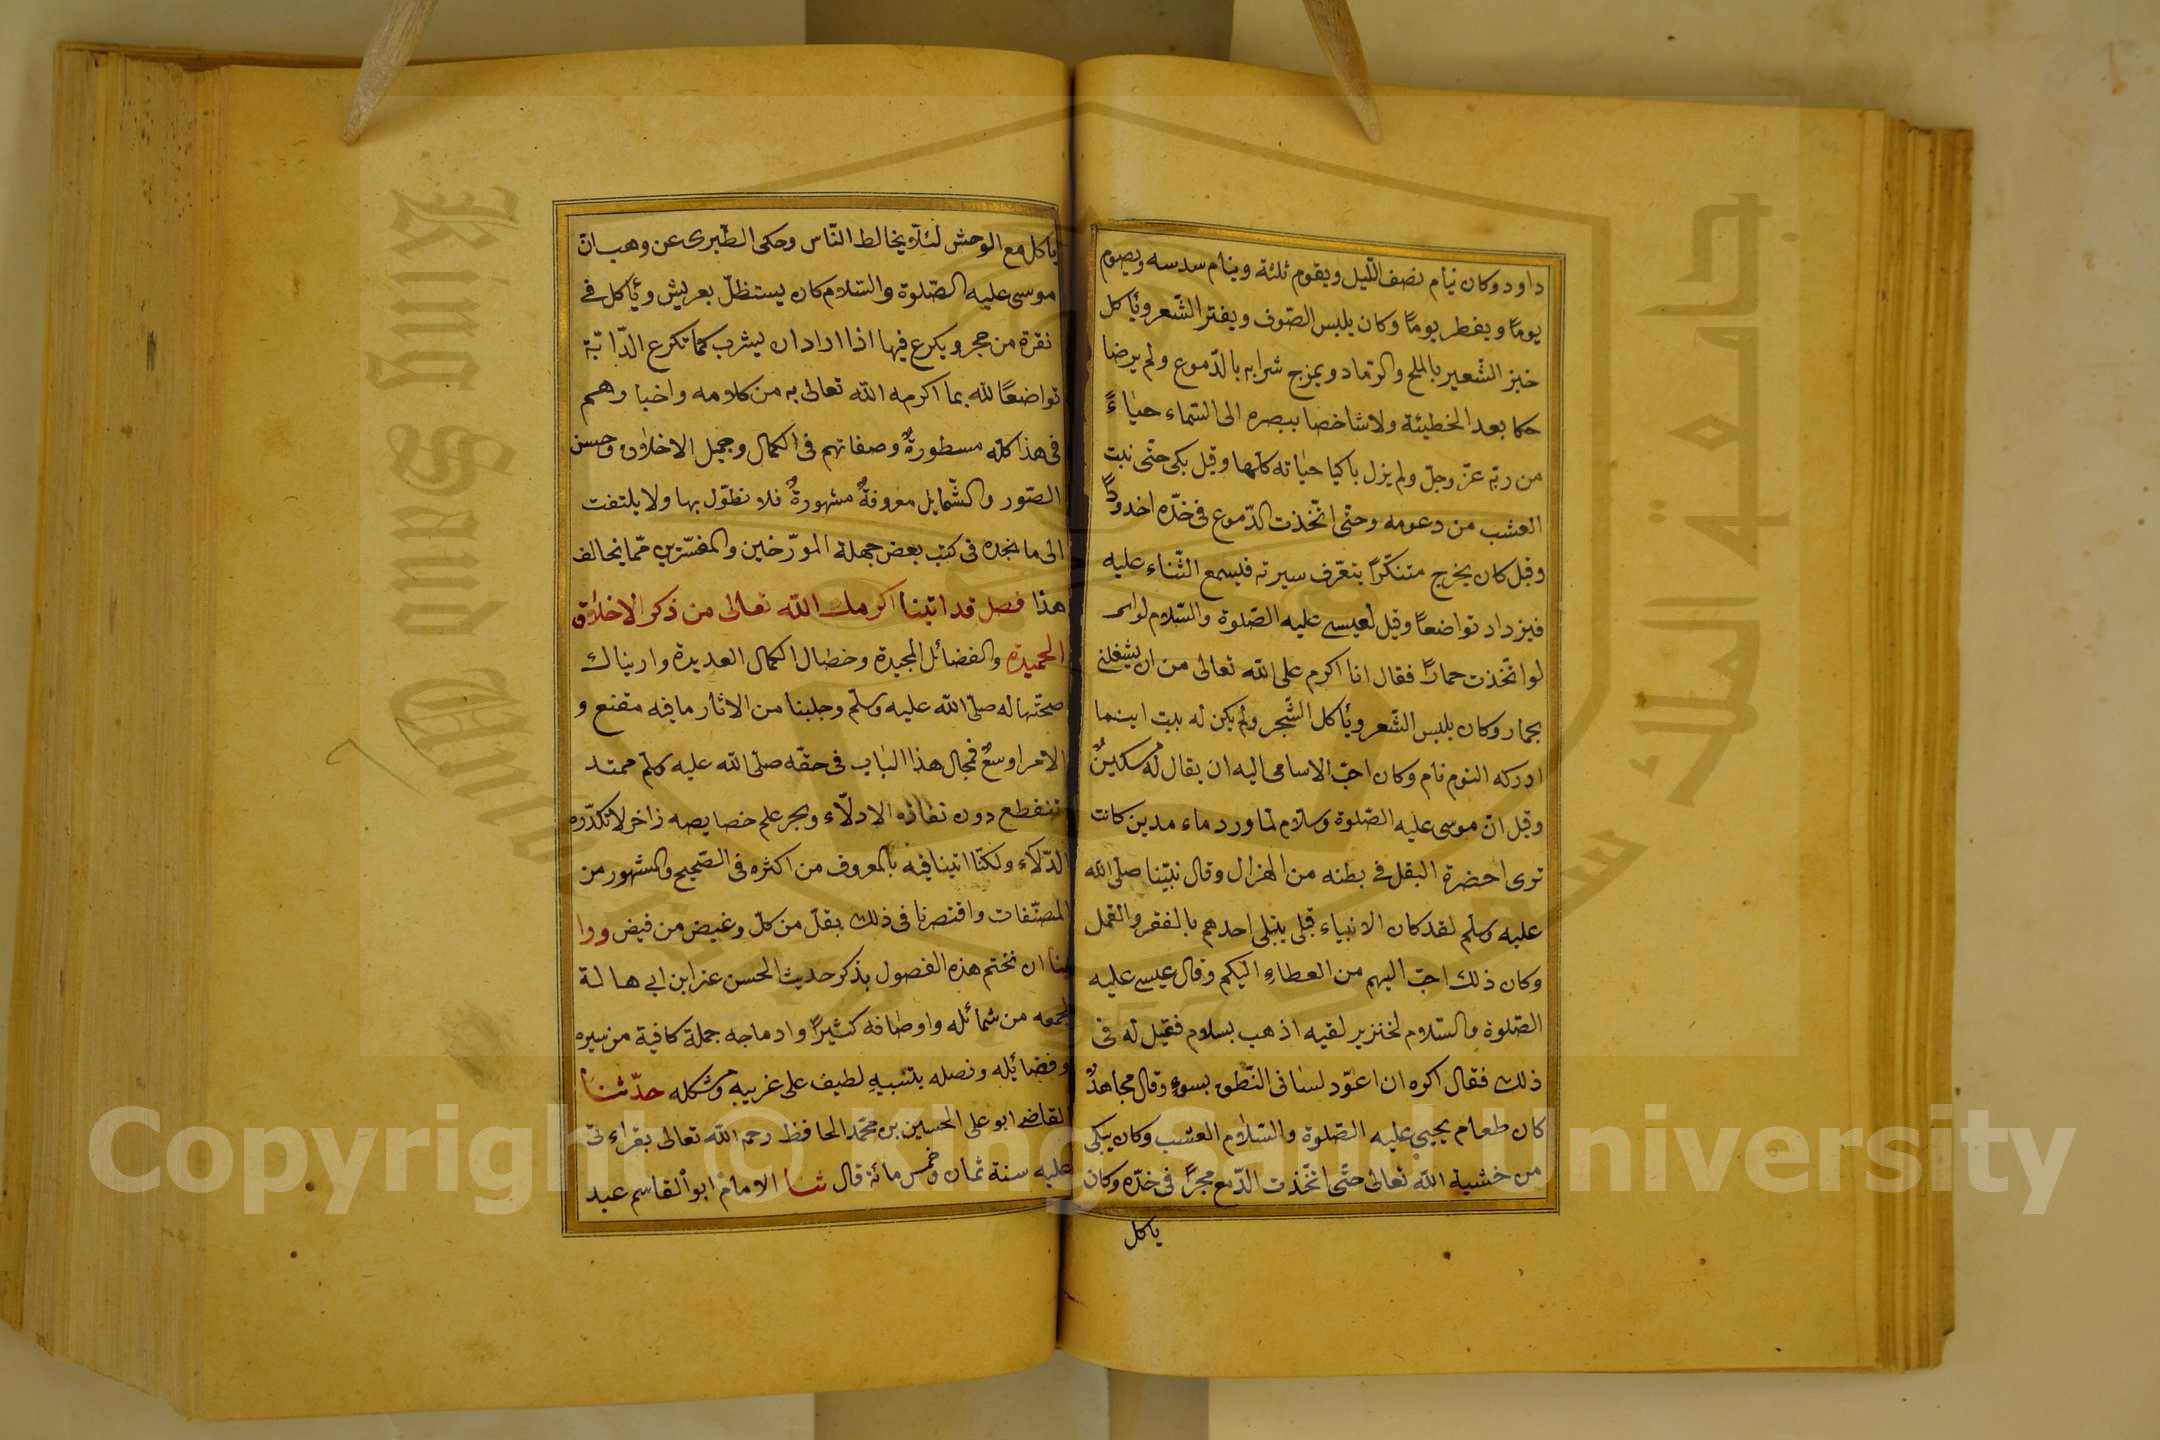 داود وكان ينام نصف اللّيل ويقوم ثلثه وينام سدسه ويصوم
يومًا ويفطر يومًا وكان يلبس الصّوف ويفترالشّعر ويأكل
خبز الشّعير بالملح والرّماد ويمزج شرابه بالدّموع ولم يرضا
حكا بعد الخطيئة ولا شاخصا ببصره الى السّماء حياءً
من ربّه عزّ وجلّ ولم يزل باكيا حياته كلّها وقيل بكى حتّى نبت
العشب من دعومه وحتّى اتّخذت الدّموع فى خدّه اخدودًا
وقيل كان يخرج متنكّرًا يتعرّف سيرته فيسمع الثّناء عليه
فيزداد تواضعًا وقيل لعيسى عليه الصّلوة والسّلام
لو اتّخذت حمارًا فقال انا اكرم على الله تعالى من ان يشغلنى
بحمار وكان يلبس الشّعر ويأكل الشّجر ولم يكن له بيت اينما
ادركه النوم نام وكان احبّ الاسامى اليه ان يقال له مسكينٌ
وقيل انّ موسى عليه الصّلوة وسلام لمّا ورد ماء مدين كانت
ترى احضرة البقل فى بطنه من الهزال وقال نبيّنا صلّى الله
عليه وسلّم لقد كان الانبياء قبلى يبتلى احدهم بالفقر والقمل
وكان ذلك احبّ اليهم من العطاء اليكم وقال عيسى عليه
الصّلوة والسّلام لخنزير لقيه اذهب بسلام فقيل له فى
ذلك فقال اكره ان اعوّد لسانى النّطق بسوء وقال مجاهدٌ
كان طعام يحيى عليه الصّلوة والسّلام العشب وكان يبكى
من خشية الله تعالى حتّى اتّخذت الدّمع مجرًا فى خدّه وكان
ياكل
يأكل مع الوحش لئلّا يخالط النّاس وحكى الطّبرى عن وهب انّ
موسى عليه الصّلوة والسّلام كان يستظلّ بعريش ويأكل فى
نقرة من حجر ويكرع فيها اذا اراد ان يشرب كما تكرع الدّابّة
تواضعًا لله بما اكرمه الله تعالى به من كلامه واخبارهم
فى هذا كلّه مسطورةٌ وصفاتهم فى الكمال وجميل الاخلاق وحسن
الصّور والشّمايل معروفةٌ مشهورةٌ فلا نطوّل بها ولا يلتفت
الى ما نجده فى كتب بعض جهلة المورّخين والمفسّرين ممّا يخالف
هذا فصل قد اتينا اكرمك الله تعالى من ذكر الاخلاق
الحميدة والفضائل المجيدة وخصال الكمال العديدة واريناك
صحّتها له صلّى الله عليه وسلّم وجلبنا من الاثار ما فيه مقنع و
الامر اوسعٌ فمجال هذا الباب فى حقّه صلّى الله عليه وسلّم ممتد
تنقطع دون نفاذه الادلّاء وبحر علم خصايصه ذاخر لا تكدّره
الدّلاء ولكنّا اتينا فيه بالمعروف من اكثره فى الصّحيح والمشهور من
المصنّفات واقتصرنا فى ذلك بقلّ من كلّ وغيض من فيض ورا
ينا ان نختم هذه الفصول بذكر حديث الحسن عن ابن ابى هالة
لجمعه من شمائله واوصافه كثيرًا وادماجه جملة كافية من سيره
وفضائله ونصله بتنبيهٍ لطيف على غريبه ومشكله حدّثنا
القاضى ابو على الحسين بن محمّد الحافظ رحمه الله تعالى بقراءتى
عليه سنة ثمان وخمس مائة قال ثنا الامام ابو القاسم عبد
King Saud University
جامعة الملك سعود
Copyright © King Saud University